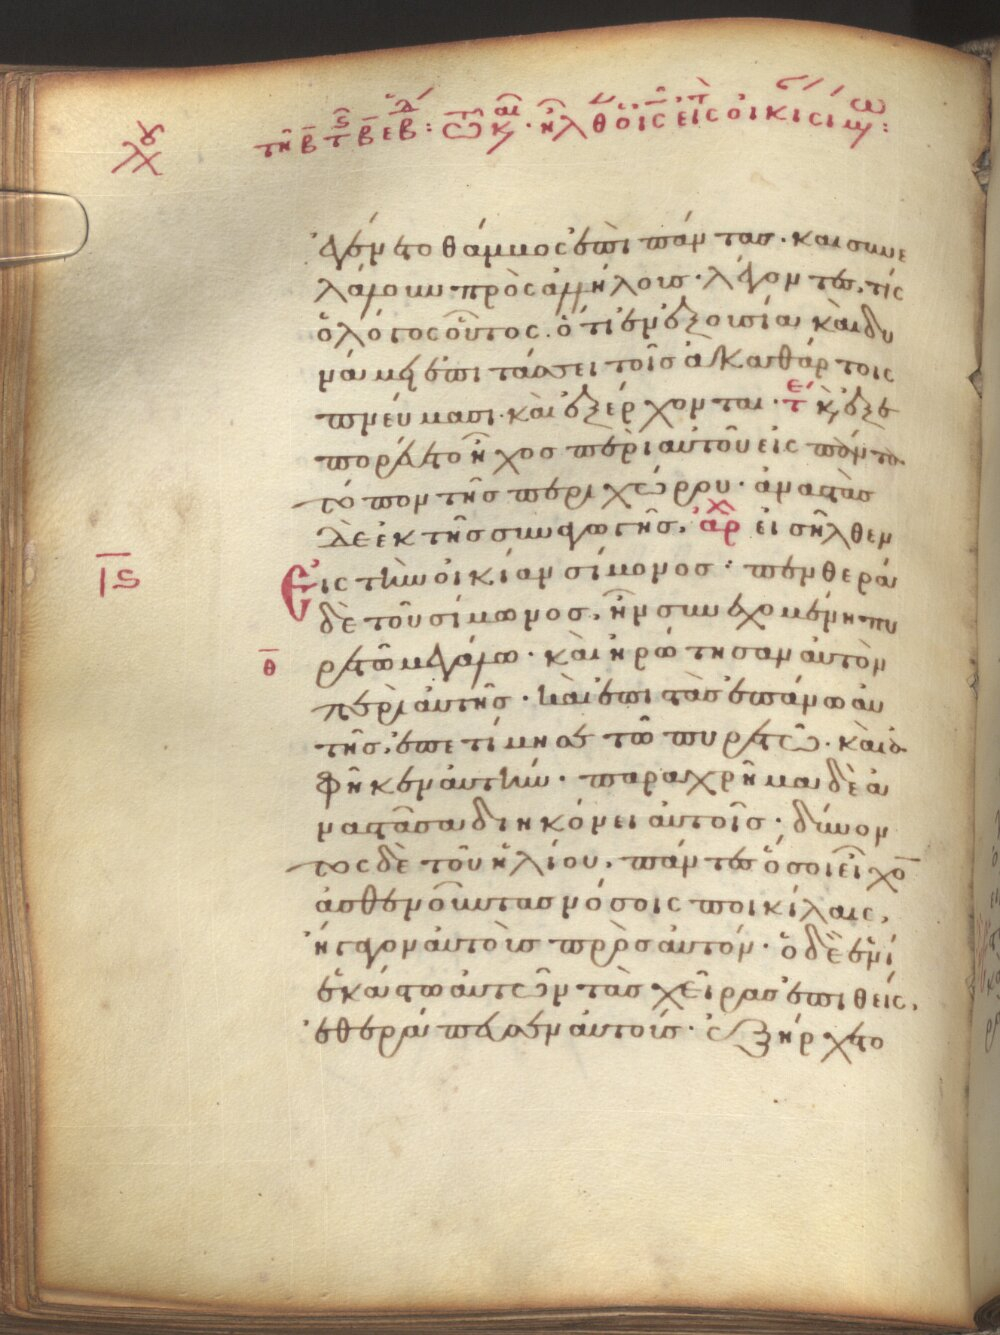 ἐγένετο θάμβος ἐπὶ πάντας· καὶ συνε
λάλουν πρὸς ἀλλήλους· λέγοντες, τίς
ὁ λόγος οὗτος. ὅτι ἐν ἐξουσία καὶ δυ
νάμει ἐπιτάσσει τοῖς ἀκαθάρτοις
πνεύμασι· καὶ ἐξέρχονται· τε κ, ἐξε
πορεύετο ἦχος περὶ αὐτοῦ εἰς πάντα
τόπον τῆς περιχώρου· ἀναστὰς
δὲ ἐκ τῆς συναγωγῆς, ἀρχ εἰσῆλθεν
ιϛ
Εἰς τὴν οἰκίαν σίμονος· πενθερὰ
δὲ τοῦ σίμωνος, ἦν συνεχομένη πυ
θ
ρετῶ μεγάλω· καὶ ἠρώτησαν αὐτὸν
περὶ αὐτῆς· καὶ ἐπιστὰς ἐπάνω αὐ
τῆς, ἐπετίμησε τῶ πυρετῶ· καὶ ἀ
φῆκεν αὐτήν· παραχρῆμα δὲ ἀ
ναστᾶσα διηκόνει αὐτοῖς· δύνον
τος δὲ τοῦ ἡλίου, πάντες ὅσοι εἶχο̅
ἀσθενοῦντας νόσοις ποικίλαις,
ἤγαγον αὐτοὺς πρὸς αὐτόν· ὁ δὲ ἑνὶ
ἑκάστω αὐτῶν τὰς χεῖρας ἐπιθείς,
ἐθεράπευσεν αὐτούς· ἐξήρχετο